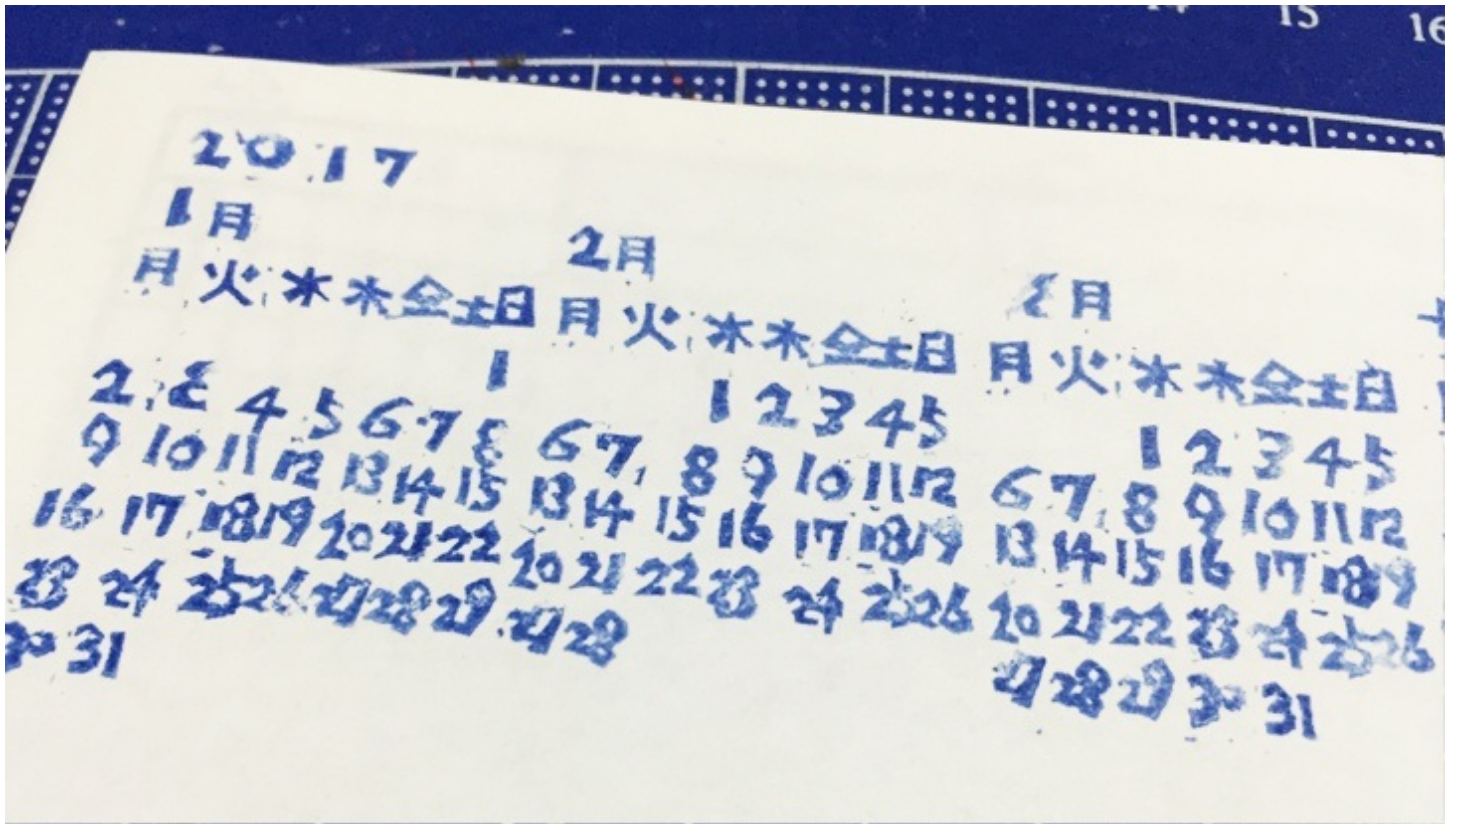 15
16
2017
1月
月 火 水 木 金 土 日
1
2 3 4 5 6 7 8
9 10 11 12 13 14 15
16 17 18 19 20 21 22
23 24 25 26 27 28 29
30 31
2月
月 火 水 木 金 土 日
1 2 3 4 5
6 7 8 9 10 11 12
13 14 15 16 17 18 19
20 21 22 23 24 25 26
27 28
3月
月 火 水 木 金 土 日
1 2 3 4 5
6 7 8 9 10 11 12
13 14 15 16 17 18 19
20 21 22 23 24 25 26
27 28 29 30 31